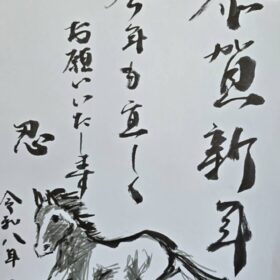 恭賀新年
今年も宜しく
お願いいたします
忍
令和八年